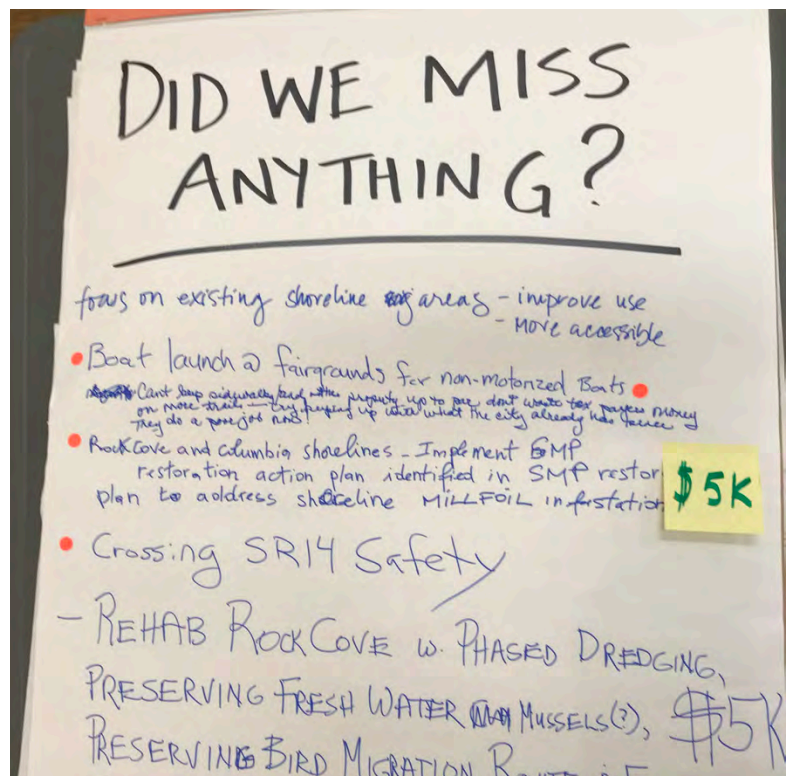 DID WE MISS
ANYTHING?
focus on existing shoreline areas - improve use
- More accessible
Boat launch @ fairgrounds for non-motorized Boats
Cant keep property up to par, dont waste tax payers money
on more trails - try keeping up with what the city already has
They do a poor job
Rock Cove and Columbia shorelines - Implement SMP
restoration action plan identified in SMP restor
plan to address shoreline MILLFOIL infestation
$5K
Crossing SR14 Safety
- REHAB ROCK COVE w. PHASED DREDGING,
PRESERVING FRESH WATER MUSSELS(?), $5K
PRESERVING BIRD MIGRATION